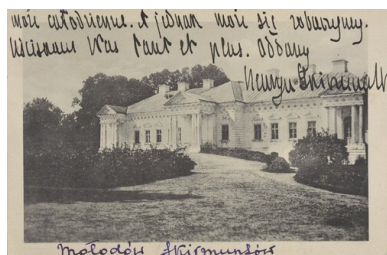 moje całodzienne. A jednak moje się zobaczymy.
Uściskam Was tant et plus. Oddany
Henryk Skirmuntt
Mołodów Skirmuntów